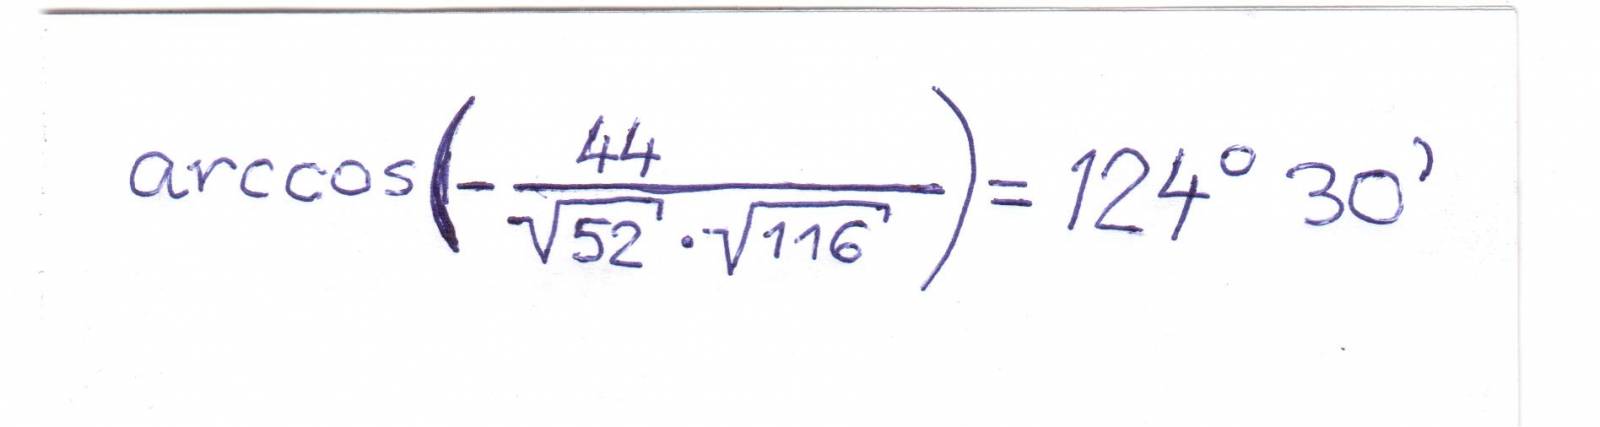 arccos(-44/(√52·√116)) = 124° 30'